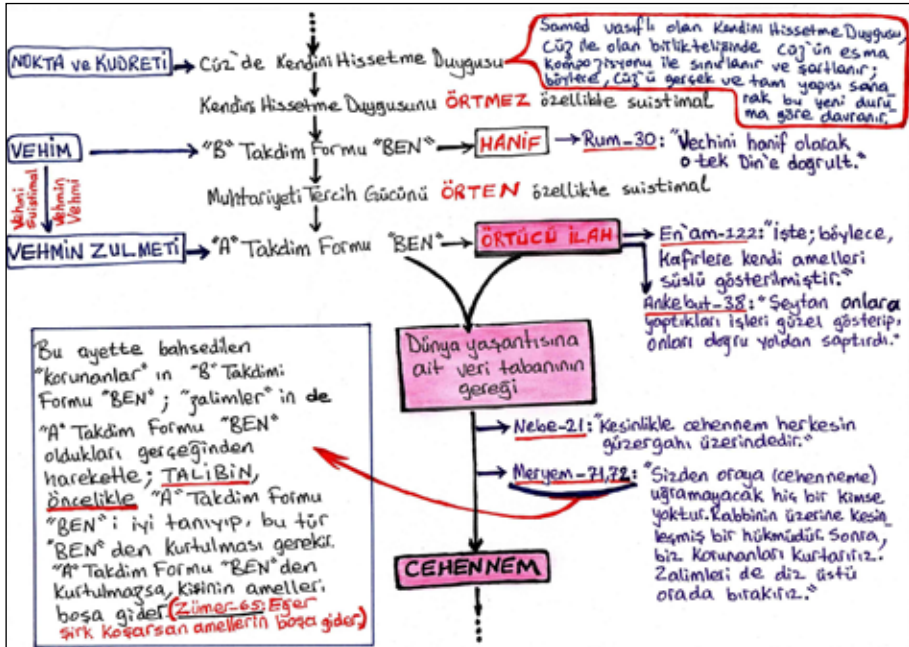 NOKTA ve KUDRETİ
Cüz'de Kendini Hissetme Duygusu
Samed vasıflı olan Kendini Hissetme Duygusu,
Cüz ile olan birlikteliğinde Cüz'ün esma
kompozisyonu ile sınırlanır ve şartlanır;
böylece, cüz'ü gerçek ve tam yapısı sana
rak bu yeni duru
ma göre davranır.
Kendini Hissetme Duygusunu ÖRTMEZ özellikte suistimal
VEHİM
"B" Takdim Formu "BEN"
HANİF
Rum-30: "Vechini hanif olarak
o tek Din'e doğrult."
Vehmi
Suistimal
Vehmin
Vehmi
Muhtariyeti Tercih Gücünü ÖRTEN özellikte suistimal
VEHMİN ZULMETİ
"A" Takdim Formu "BEN"
ÖRTÜCÜ İLAH
En'am-122: "işte; böylece,
Kafirlere kendi amelleri
süslü gösterilmiştir."
Ankebut-38: "Şeytan onlara
yaptıkları işleri güzel gösterip,
onları doğru yoldan saptırdı."
Dünya yaşantısına
ait veri tabanının
gereği
Nebe-21: "Kesinlikle cehennem herkesin
güzergahı üzerindedir."
Meryem-71,72: "Sizden oraya (cehenneme)
uğramayacak hiç bir kimse
yoktur. Rabbinin üzerine kesin
leşmiş bir hükmüdür. Sonra,
biz korunanları kurtarırız.
Zalimleri de diz üstü
orada bırakırız."
CEHENNEM
Bu ayette bahsedilen
"korunanlar"ın "B" Takdimi
Formu "BEN"; "zalimler"in de
"A" Takdim Formu "BEN"
oldukları gerçeğinden
hareketle; TALİBİN,
öncelikle "A" Takdim Formu
"BEN"i iyi tanıyıp, bu tür
"BEN"den kurtulması gerekir.
"A" Takdim Formu "BEN"den
kurtulmazsa, kişinin amelleri
boşa gider. (Zümer-65: Eğer
şirk koşarsan amellerin boşa gider.)